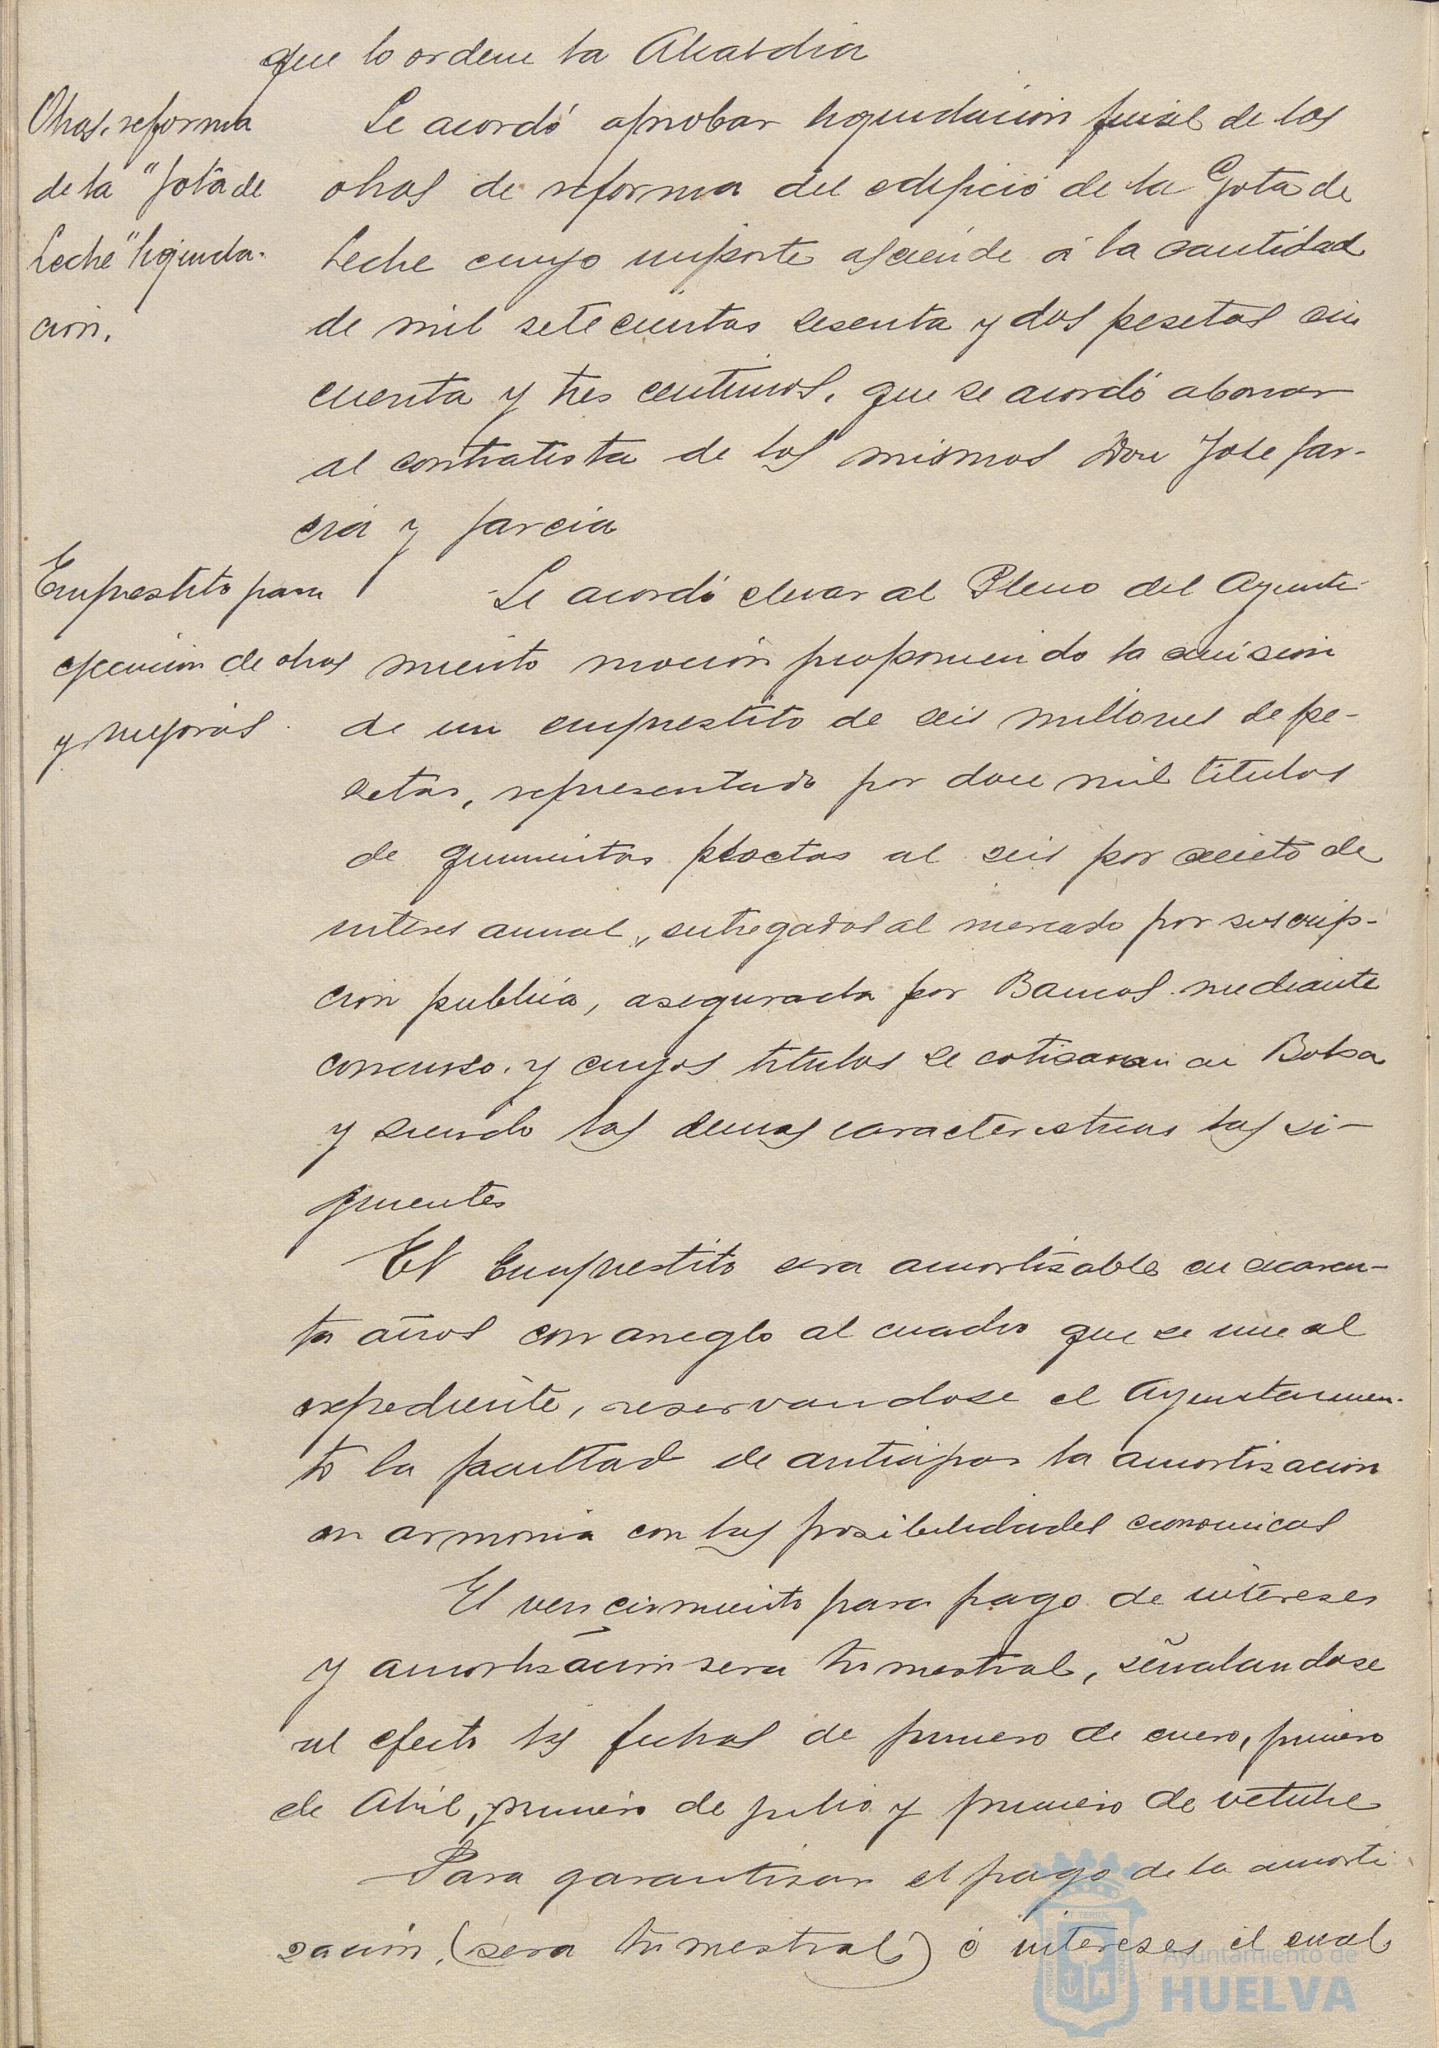 que lo ordene la Alcaldia
Obras, reforma
de la "Gota de
Leche" liquida-
ción.
Se acordó aprobar liquidacion final de las
obras de reforma del edificio de la Gota de
Leche cuyo importe asciende á la cantidad
de mil setecientas sesenta y dos pesetas cin
cuenta y tres centimos, que se acordó abonar
al contratista de las mismas Don Jose Gar-
cia y Garcia
Emprestito para
ejecución de obras
y mejoras
Se acordó elevar al Pleno del Ayunta-
miento moción proponiendo la emision
de un emprestito de seis millones de pe-
setas, representado por doce mil titulos
de quinientas pesetas al seis por ciento de
interes anual, entregados al mercado por suscrip-
cion publica, asegurada por Bancos mediante
concurso, y cuyos titulos se cotisaran en Bolsa
y siendo las demas caracteristicas las si-
guientes
El Emprestito sera amortisable en cuaren-
ta años con arreglo al cuadro que se une al
expediente, reservandose el Ayuntamien-
to la facultad de anticipar la amortisacion
en armonia con las posibilidades economicas
El vencimiento para pago de intereses
y amortisación sera trimestral, señalandose
al efecto las fechas de primero de enero, primero
de Abril, primero de julio y primero de octubre
Para garantisar el pago de la amorti
zación, (sera trimestral) é intereses el cual
Ayuntamiento de
HUELVA